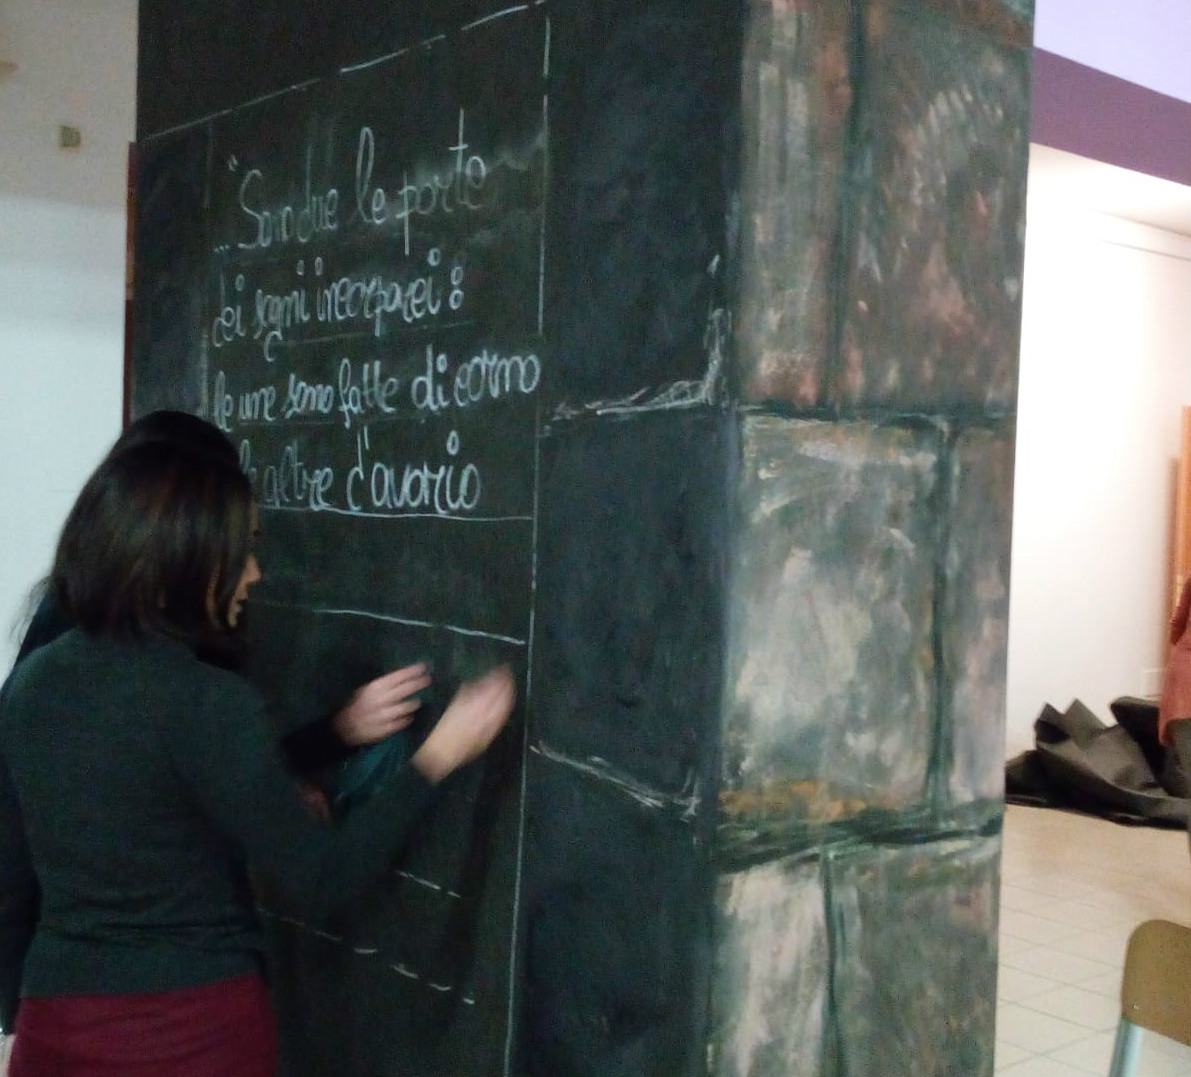 "... Son due le porte
dei sogni incorporei:
le une sono fatte di corno
le altre d'avorio